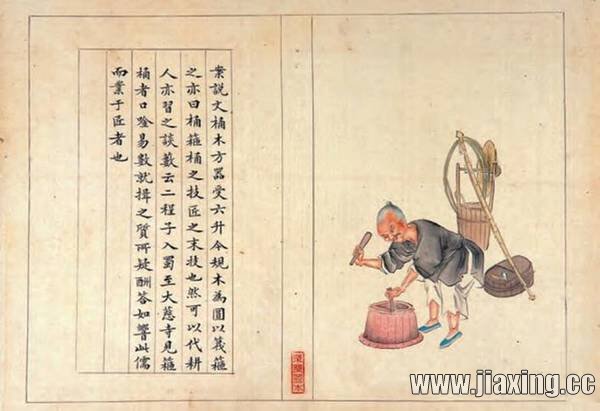 案說文桶木方器受六升今規木為圓以篾箍
之亦曰桶箍桶之技匠之末技也然可以代耕
人亦習之談藪云二程子入蜀至大慈寺見箍
桶者口唫易數就揖之質所疑酬答如響此儒
而業于匠者也
www.jiaxing.cc